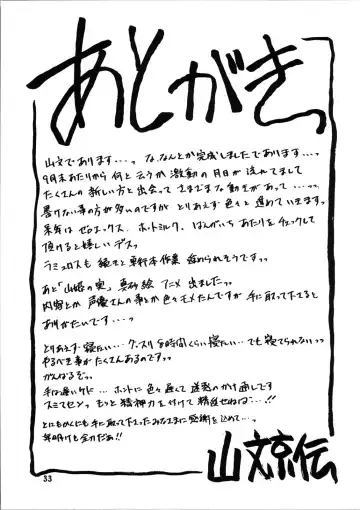 あとがき
山文であります…っ な、なんとか完成しましたであります…っ
9月末あたりから 何と云うか 激動の月日が流れてまして
たくさんの新しい方と出会って さまざまな動きがあって…っっ
書けない事の方が多いのですが とりあえず色々と進めていきますっ
来年は ゼロエックス、ホットミルク、ばんがいちあたりをチェックして
頂けると嬉しいデスっ
ラミュロスも 続きと単行本作業 進められそうですっ
あと「山姫の実」真砂絵 アニメ 出ましたっっ
内容とか声優さんの事とか色々モメたんですが 手に取って下さると
ありがたいです…っ
とりあえず 寝たい… グッスリ8時間くらい寝たい…でも寝てられないっっ
やるべき事がたくさんあるのですっ
がんばるぞっ
手は遅いケド… ホントに色々遅くて迷惑のかけ通しです
スミマセンっ もっと精神力を付けて精進せねば…!!
とにもかくにも 手に取って下さったみなさまに感謝を込めて…っ
年明けも全力だぁ!!
山文京伝
33